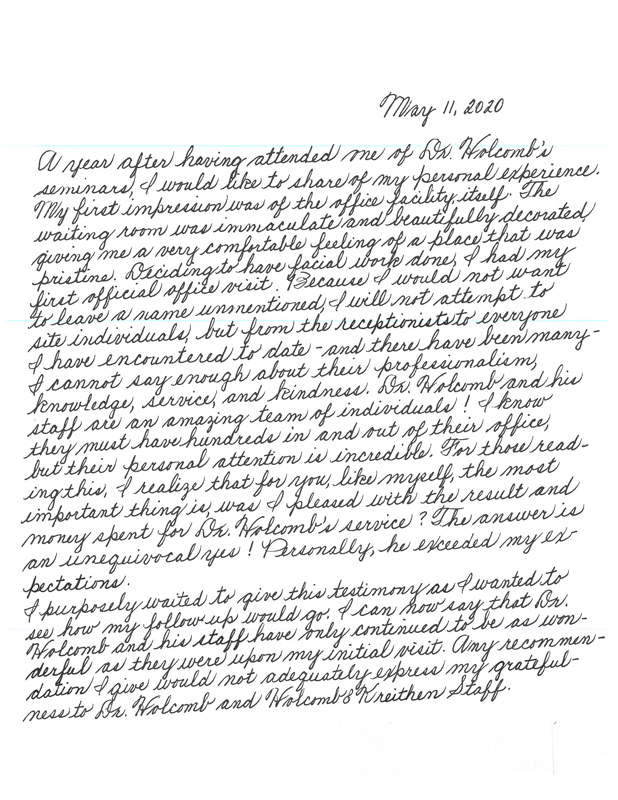 May 11, 2020
A year after having attended one of Dr. Holcomb's
seminars, I would like to share of my personal experience.
My first impression was of the office facility itself. The
waiting room was immaculate and beautifully decorated,
giving me a very comfortable feeling of a place that was
pristine. Deciding to have facial work done, I had my
first official office visit. Because I would not want
to leave a name unmentioned, I will not attempt to
site individuals, but from the receptionists to everyone
I have encountered to date - and there have been many -
I cannot say enough about their professionalism,
knowledge, service, and kindness. Dr. Holcomb and his
staff are an amazing team of individuals! I know
they must have hundreds in and out of their office,
but their personal attention is incredible. For those read-
ing this, I realize that for you, like myself, the most
important thing is, was I pleased with the result and
money spent for Dr. Holcomb's service? The answer is
an unequivocal yes! Personally, he exceeded my ex-
pectations.
I purposely waited to give this testimony as I wanted to
see how my follow up would go. I can now say that Dr.
Holcomb and his staff have only continued to be as won-
derful as they were upon my initial visit. Any recommen-
dation I give would not adequately express my grateful-
ness to Dr. Holcomb and Holcomb & Kreithen Staff.